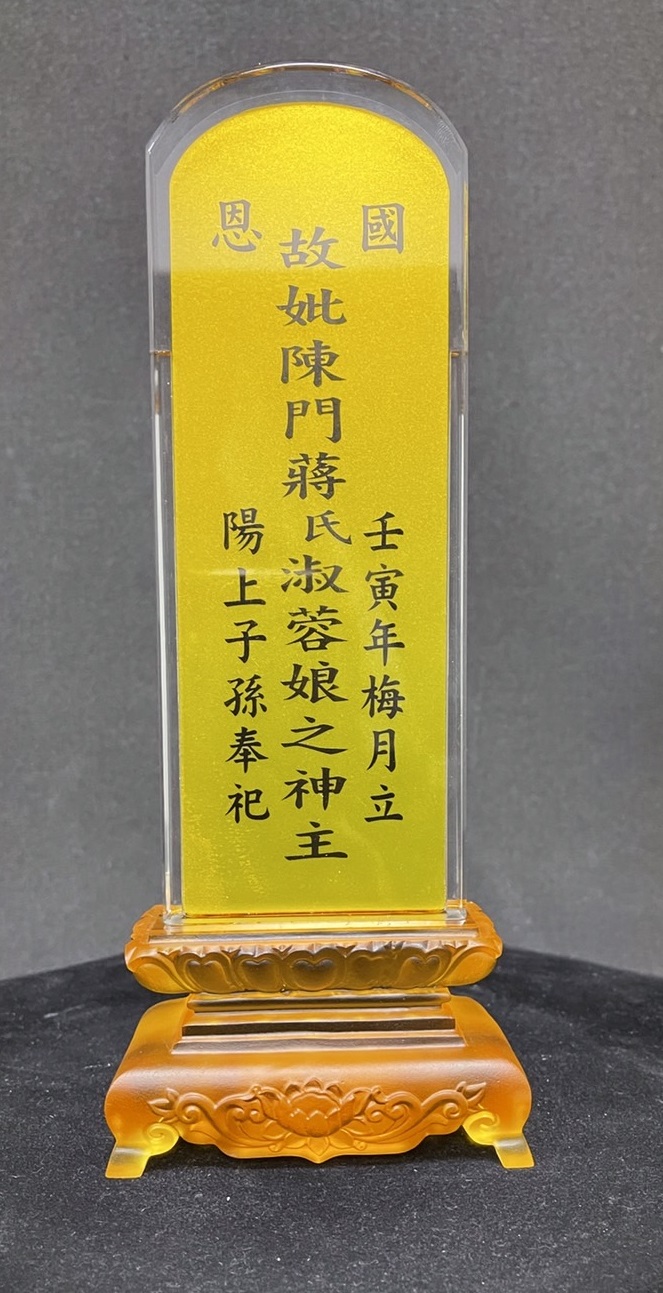 國恩
壬寅年梅月立
故妣陳門蔣氏淑蓉娘之神主
陽上子孫奉祀